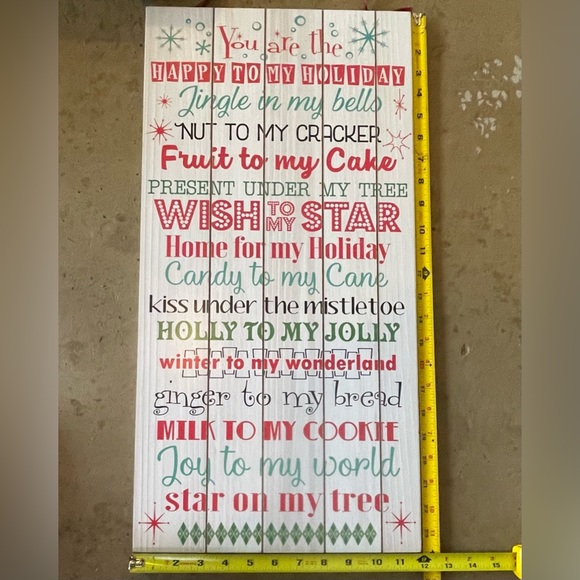 You are the
HAPPY TO MY HOLIDAY
Jingle in my bells
NUT TO MY CRACKER
Fruit to my Cake
PRESENT UNDER MY TREE
WISH TO MY STAR
Home for my Holiday
Candy to my Cane
kiss under the mistletoe
HOLLY TO MY JOLLY
winter to my wonderland
ginger to my bread
MILK TO MY COOKIE
Joy to my world
star on my tree
2 3 4 5 6 7 8 9 10 11 13 14 15